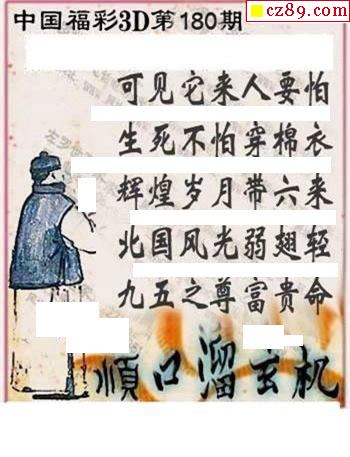 cz89.com
中国福彩3D第180期
可见它来人要怕
生死不怕穿棉衣
辉煌岁月带六来
北国风光弱翅轻
九五之尊富贵命
順口溜玄机